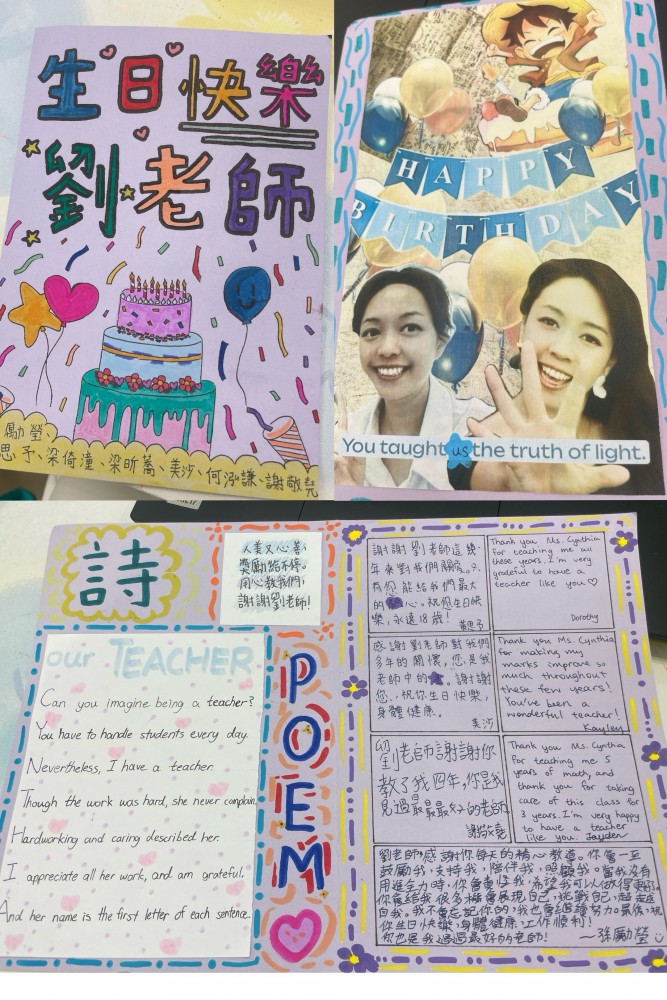 生日快樂
劉老師
勵瑩、
思予、梁倚潼、梁昕蕎、美沙、何泓謙、謝敬堯
HAPPY
BIRTHDAY
You taught us the truth of light.
詩
人美又心善,
獎勵給不停。
用心教我們,
謝謝劉老師!
our TEACHER
Can you imagine being a teacher?
You have to handle students every day.
Nevertheless, I have a teacher.
Though the work was hard, she never complain.
Hardworking and caring described her.
I appreciate all her work, and am grateful.
And her name is the first letter of each sentence.
POEM
謝謝劉老師這幾
年來對我們的關
有你能給我們最大
的心。祝您生日快
樂,永遠18歲!
思予
Thank you Ms. Cynthia
for teaching me all
these years. I'm very
grateful to have a
teacher like you
Dorothy
感謝劉老師對我們
多年的關懷,您是我
老師中的。謝謝
您,祝你生日快樂,
身體健康。
美沙
Thank you Ms. Cynthia
for making my
marks improve so
much throughout
these few years!
You've been a
wonderful teacher!
Kayley
劉老師謝謝你
教了我四年,你是我
見過最最最好的老師
謝敬堯
Thank you Ms. Cynthia
for teaching me 5
years of math, and
thank you for taking
care of this class for
3 years. I'm very happy
to have a teacher
like you. Jayden
劉老師感謝你每天的精心教導。你會一直
鼓勵我,支持我,陪伴我,照顧我。當我沒有
用進全力時,你會責怪我,希望我可以做得更好。
你會給我很多機會展現自己,挑戰自己,超越
自我。我不會忘記你的,我也會繼續努力。最後,祝
你生日快樂,身體健康,工作順利!
你也是我遇過最好的老師!
~孫勵瑩